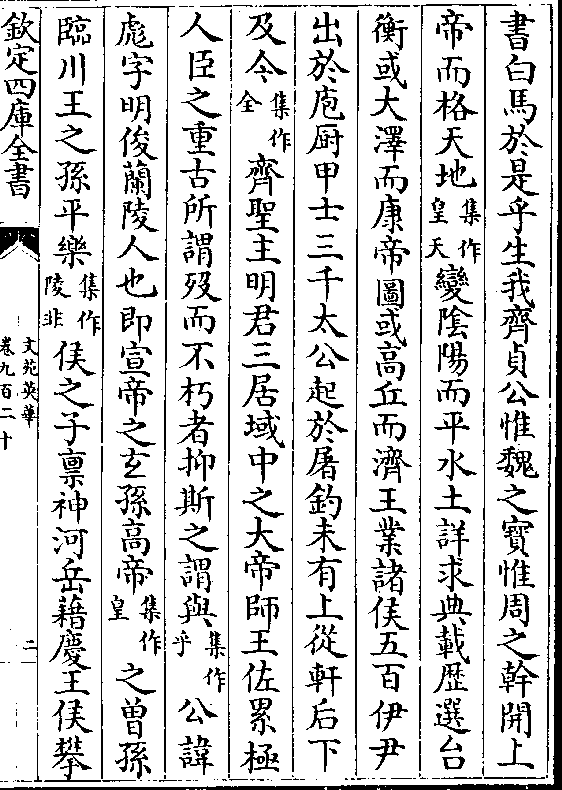 書白馬於是乎生我齊貞公惟魏之寶惟周之幹開上
帝而格天地集作皇天變陰陽而平水土詳求典載歴選台
衡或大澤而康帝圖或高丘而濟王業諸侯五百伊尹
出於庖厨甲士三千太公起於屠釣未有上從軒后下
及今集作全齊聖主明君三居域中之大帝師王佐累極
人臣之重古所謂歿而不朽者抑斯之謂與集作乎公諱
彪字明俊蘭陵人也即宣帝之玄孫高帝集作皇之曽孫
臨川王之孫平樂集作陵非侯之子禀神河岳藉慶王侯攀
欽定四庫全書
文苑英華
卷九百二十
二